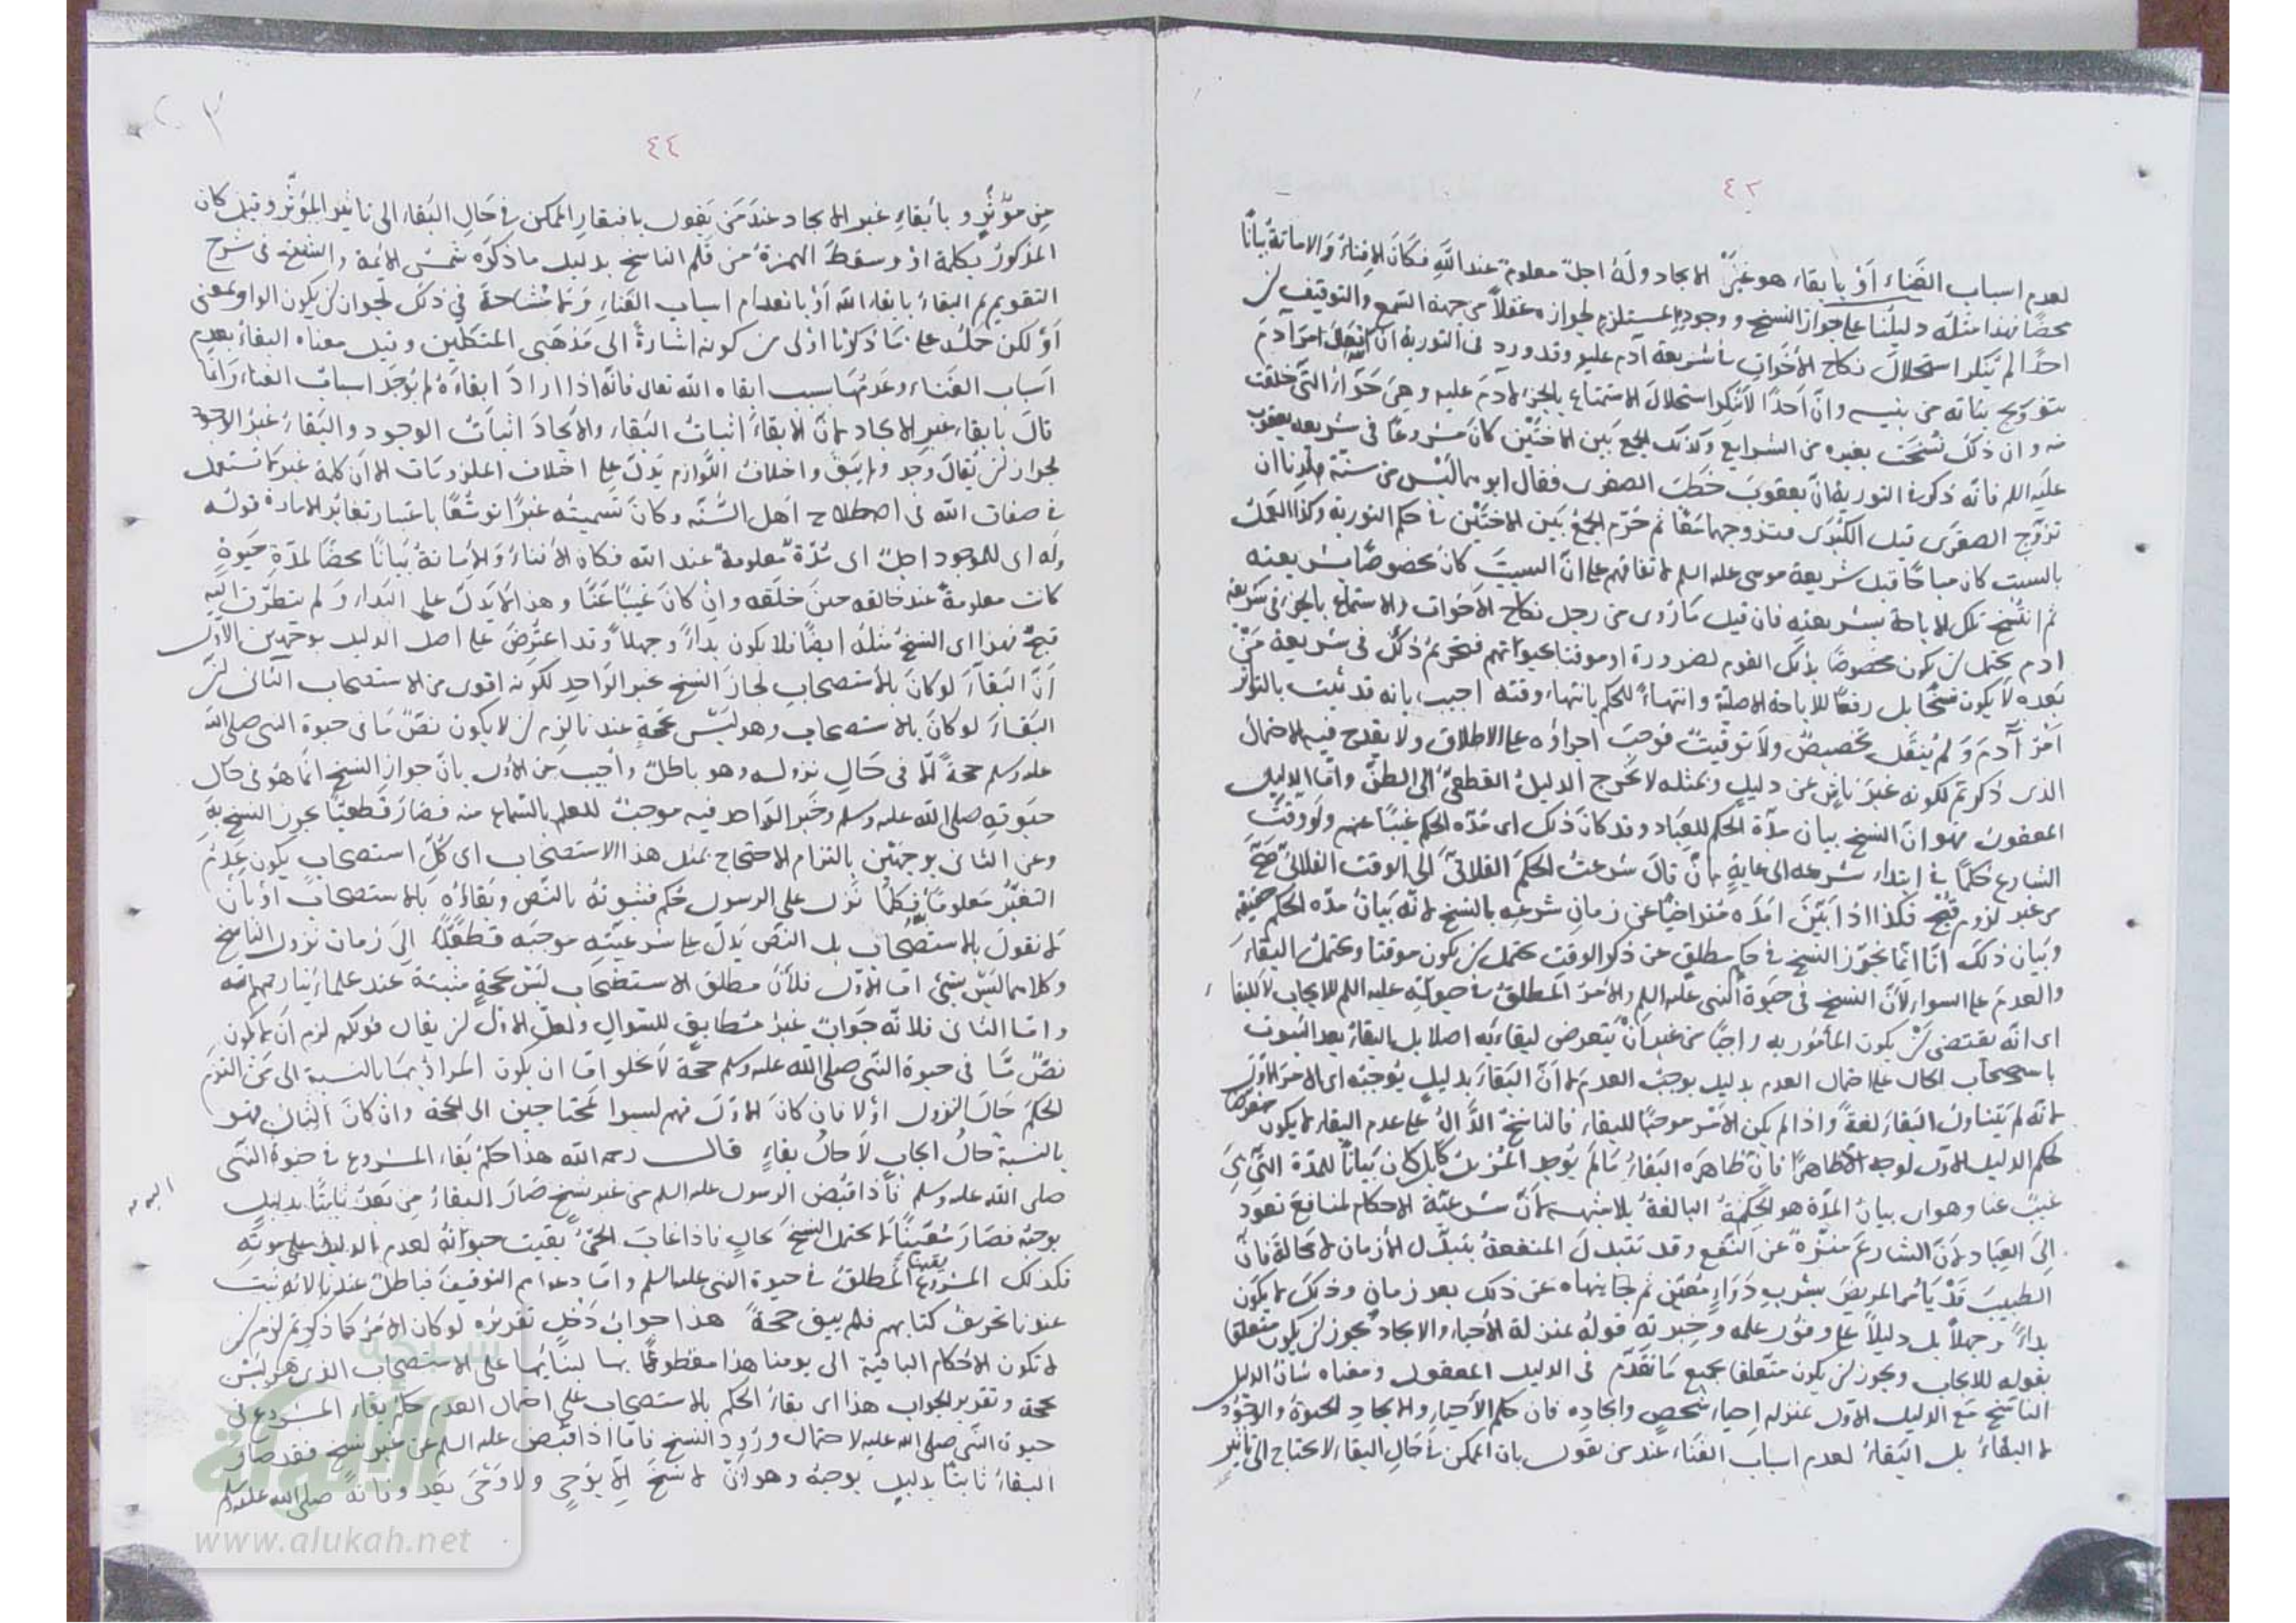 ٤٣
لعدم اسباب الفناء أو بابقاء هو غير الايجاد وله اجل معلوم عند الله فكان الافناء والاماتة بيانا
محضا فهذا مثله دليلنا على جواز النسخ ووجوده المستلزم لجوازه عقلا من جهة السمع والتوقيف ان
احدا لم ينكر استحلال نكاح الاخوات في شريعة آدم عليه وقد ورد في التورية ان الله امر آدم
بتزويج بناته من بنيه وان احدا لا ينكر استحلال الاستمتاع بالجزء لآدم عليه وهي حواء التي خلقت
منه وان ذلك نسخت بغيره من الشرايع وكذلك الجمع بين الاختين كان مشروعا في شريعه يعقوب
عليه السلم فانه ذكر في التورية ان يعقوب خطب الصغرى فقال ابوهما ليس من سنة بلدنا ان
تزوج الصغرى قبل الكبرى فتزوجهما معا ثم حرم الجمع بين الاختين في حكم التورية وكذا العمل
بالسبت كان مباحا قبل شريعة موسى عليه السلم لاتفاقهم على ان السبت كان مخصوصا بشريعته
ثم انتسخ تلك الاباحة بشريعته فان قيل ما روى من حل نكاح الاخوات والاستمتاع بالجزء في شريعة
ادم يحتمل ان يكون مخصوصا بذلك القوم لضرورة او موقتا بحيوتهم فتحريم ذلك في شريعة من
بعده لا يكون نسخا بل رفعا للاباحة الاصلية وانتهاء للحكم بانتهاء وقته اجيب بانه قد ثبت بالتواتر
امر آدم ولم ينقل تخصيص ولا توقيت فوجب اجراؤه على الاطلاق ولا يقدح فيه الاحتمال
الذى ذكرتم لكونه غير ناش عن دليل وبمثله لا يخرج الدليل القطعي الى الظن واما الدليل
المعقول فهو ان النسخ بيان مدة الحكم للعباد وقد كان ذلك اى مدة الحكم غيبا عنهم ولو وقت
الشارع حكما في ابتداء شرعه الى غاية بان قال شرعت الحكم الفلاني الى الوقت الفلاني صح
من غير لزوم قبح فكذا اذا بين امده متراخيا عن زمان شرعه بالنسخ لانه بيان مدة الحكم حقيقة
وبيان ذلك انا انما نجوز النسخ في حكم مطلق عن ذكر الوقت يحتمل ان يكون موقتا ويحتمل البقاء
والعدم على السواء لأن النسخ في حيوة النبى عليه السلم والامر المطلق في حيوته عليه السلم للايجاب لا للبقاء
اى انه يقتضى ان يكون المأمور به واجبا من غير ان يتعرض لبقاءه اصلا بل البقاء بعد الثبوت
باستصحاب الحال على احتمال العدم بدليل يوجب العدم لا ان البقاء بدليل يوجبه اى الامر الاول
لانه لم يتناول البقاء لغة واذا لم يكن الامر موجبا للبقاء فالناسخ الدال على عدم البقاء لا يكون متعرضا
لحكم الدليل الاول لوجه الا ظاهرا فان ظاهره البقاء ما لم يوجد المزيل بل كان بيانا للمدة التي هي
غيب عنا وهو اى بيان المدة هو الحكمة البالغة بلا شبهة لأن شرعية الاحكام لمنافع تعود
الى العباد لان الشارع منزه عن النفع وقد تتبدل المنفعة بتبدل الأزمان لا محالة فان
الطبيب قد يأمر المريض بشرب دواء معين ثم ينهاه عن ذلك بعد زمان وذلك لا يكون
بداء وجهلا بل دليلا على وفور علمه وخبرته قوله بمنزلة الأحياء والايجاد يجوز ان يكون متعلقا
بقوله للايجاب ويجوز ان يكون متعلقا بجميع ما تقدم في الدليل المعقول ومعناه شان الدليل
الناسخ مع الدليل الاول بمنزلة احياء شخص وايجاده فان حكم الأحياء والايجاد الحيوة والوجود
لا البقاء بل البقاء لعدم اسباب الفناء عند من يقول بان الممكن في حال البقاء لا يحتاج الى تاثير
٤٤
من مؤثر وبأبقاء غير الايجاد عند من يقول بافتقار الممكن في حال البقاء الى تاثير المؤثر وقيل كان
المذكور بكلمة او وسقط الهمزة من قلم الناسخ بدليل ما ذكره شمس الائمة والشيخ في شرح
التقويم ثم البقاء بابقاء الله او بانعدام اسباب الفناء ولا مشاحة في ذلك لجواز ان يكون الواو بمعنى
أو لكن حمله على ما ذكرنا اولى من كونه اشارة الى مذهبي المتكلمين وقيل معناه البقاء بعدم
اسباب الفناء وعدمها بسبب ابقاء الله تعالى فانه اذا اراد ابقاءه لم يوجد اسباب الفناء وانما
قال بابقاء غير الايجاد لان الابقاء اثبات البقاء والايجاد اثبات الوجود والبقاء غير الوجود
لجواز ان يقال وجد ولم يبق واختلاف اللوازم يدل على اختلاف الملزومات الا ان كلمة غير لا تستعمل
في صفات الله في اصطلاح اهل السنة وكان تسميته غيرا توسعا باعتبار تغاير الاماره قوله
وله اى للموجود اجل اى مدة معلومة عند الله فكان الافناء والاماتة بيانا محضا لمدة حيوة
كانت معلومة عند خالقه حين خلقه وان كان غيبا عنا وهذا لا يدل على البداء ولم يتطرق اليه
قبح فهذا اى النسخ مثله ايضا فلا يكون بداء وجهلا وقد اعترض على اصل الدليل بوجهين الاول
أن البقاء لو كان بالاستصحاب لجاز النسخ بخبر الواحد لكونه اقوى من الاستصحاب الثاني ان
البقاء لو كان بالاستصحاب وهو ليس بحجة عندنا لزم ان لا يكون نص ما في حيوة النبى صلى الله
عليه وسلم حجة الا في حال نزوله وهو باطل وأجيب عن الاول بان جواز النسخ انما هو في حال
حيوته صلى الله عليه وسلم وخبر الواحد فيه موجب للعلم بالسماع منه فصار قطعيا يجوز النسخ به
وعن الثاني بوجهين بالتزام الاحتجاج بمثل هذا الاستصحاب اى كل استصحاب يكون عدم
التغير معلوما فكلما نزل على الرسول حكم فثبوته بالنص وبقاؤه بالاستصحاب او بان
لا نقول بالاستصحاب بل النص يدل على شرعيته موجبه قطعا الى زمان نزول الناسخ
وكلاهما ليس بشئ اما الاول فلأن مطلق الاستصحاب ليس بحجة مثبتة عند علمائنا رحمهم الله
واما الثاني فلانه جواب غير مطابق للسوال ولعل الاولى ان يقال قولكم لزم ان لا يكون
نص ما في حيوة النبى صلى الله عليه وسلم حجة لا يخلو اما ان يكون المراد بها بالنسبة الى من التزم
الحكم حال النزول اولا فان كان الاول فهم ليسوا بمحتاجين الى الحجة وان كان الثاني فهو
بالنسبة حال ايجاب لا حال بقاء قال رحمه الله هذا حكم بقاء المشروع في حيوة النبى
صلى الله عليه وسلم فأذا قبض الرسول عليه السلم من غير نسخ صار البقاء من بعد ثابتا بدليل
يوجبه فصار متيقنا لا يحتمل النسخ بحال فاذا غاب الحى بقيت حيوته لعدم الدليل على موته
فكذلك المشروع المطلق في حيوة النبى عليه السلم واما دعواهم التوقيف فباطل عندنا لانه ثبت
عندنا تحريف كتابهم فلم يبق حجة هذا جواب دخل تقديره لو كان الامر كما ذكرتم لزم ان
لا تكون الاحكام الباقية الى يومنا هذا مقطوعا بها لبنائها على الاستصحاب الذى هو ليس
بحجة وتقدير الجواب هذا اى بقاء الحكم بالاستصحاب على احتمال العدم حكم بقاء المشروع في
حيوة النبى صلى الله عليه لاحتمال ورود النسخ فاما اذا قبض عليه السلم من غير نسخ فقد صار
البقاء ثابتا بدليل يوجبه وهو ان لا نسخ الا بوحي ولا وحى بعد وفاته صلى الله عليه وسلم
شبكة
الألوكة
www.alukah.net